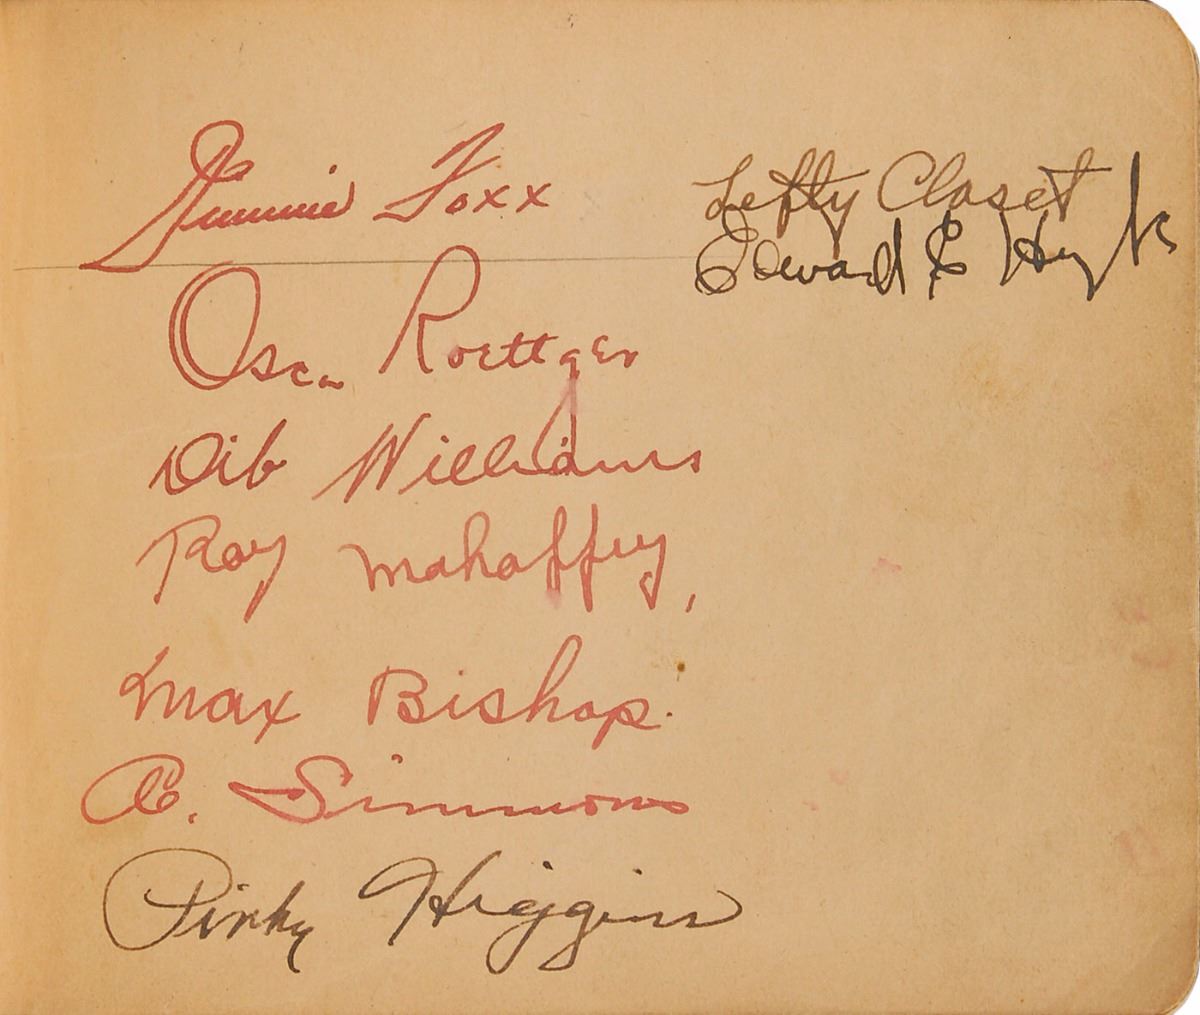 Jimmie Foxx
Oscar Roettger
Dib Williams
Roy Mahaffey,
Max Bishop.
A. Simmons
Pinky Higgins
Lefty Closet
Edward E